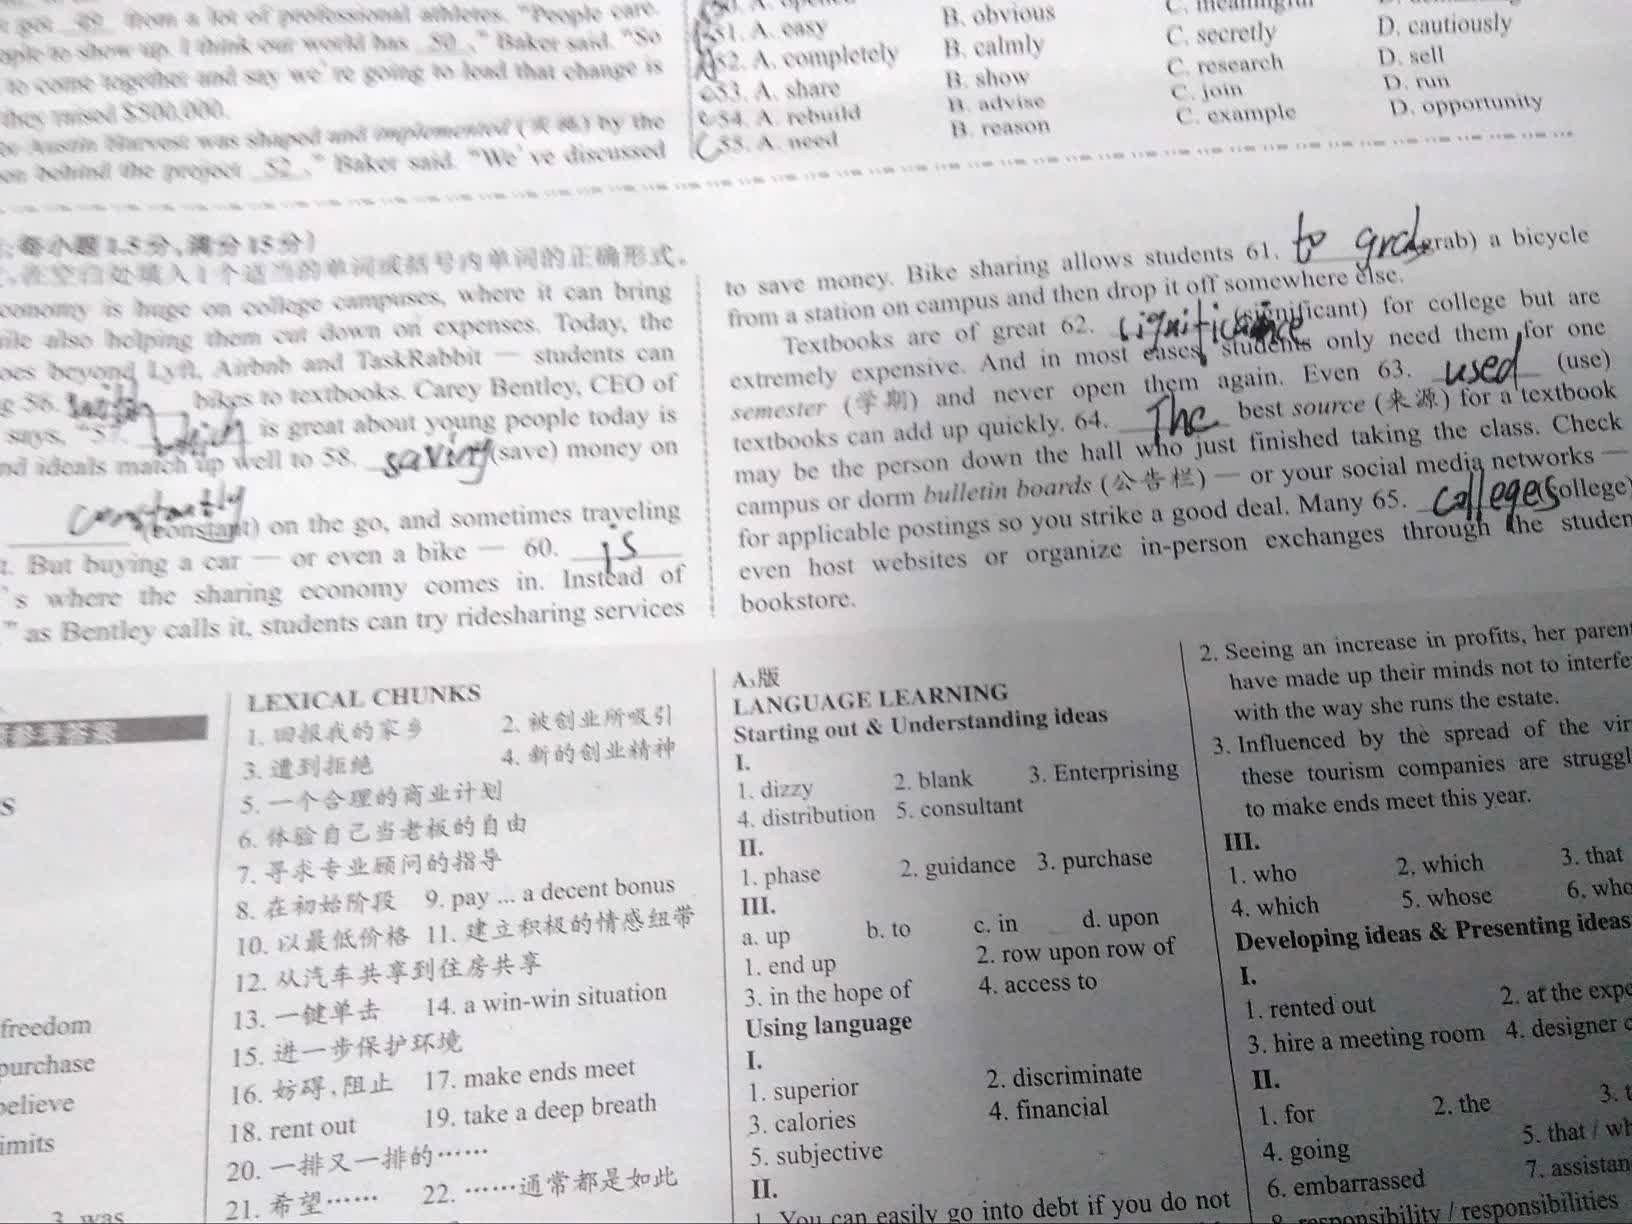 from a lot of professional athletes. "People care.
ople to show up. I think our world has 50 ," Baker said. "So
to come together and say we're going to lead that change is
they raised $500,000.
Austin Harvest was shaped and implemented (实施) by the
on behind the project 52 ," Baker said. "We've discussed
B. obvious
51. A. easy B. calmly C. secretly D. cautiously
52. A. completely B. show C. research D. sell
53. A. share B. advise C. join D. run
54. A. rebuild B. reason C. example D. opportunity
55. A. need
每小题1.5分,满分15分)
在空白处填入1个适当的单词或括号内单词的正确形式。
conomy is huge on college campuses, where it can bring
ile also helping them cut down on expenses. Today, the
oes beyond Lyft, Airbnb and TaskRabbit — students can
g 56. bikes to textbooks. Carey Bentley, CEO of
says, "57. which is great about young people today is
nd ideals match up well to 58. saving (save) money on
constantly (constant) on the go, and sometimes traveling
t. But buying a car — or even a bike — 60. is
's where the sharing economy comes in. Instead of
" as Bentley calls it, students can try ridesharing services
to save money. Bike sharing allows students 61. to grab (grab) a bicycle
from a station on campus and then drop it off somewhere else.
Textbooks are of great 62. significance (significant) for college but are
extremely expensive. And in most cases, students only need them for one
semester (学期) and never open them again. Even 63. used (use)
textbooks can add up quickly. 64. The best source (来源) for a textbook
may be the person down the hall who just finished taking the class. Check
campus or dorm bulletin boards (公告栏) — or your social media networks —
for applicable postings so you strike a good deal. Many 65. colleges (college)
even host websites or organize in-person exchanges through the studen
bookstore.
S
freedom
purchase
believe
imits
3. was
LEXICAL CHUNKS
1. 回报我的家乡 2. 被创业所吸引
3. 遭到拒绝 4. 新的创业精神
5. 一个合理的商业计划
6. 体验自己当老板的自由
7. 寻求专业顾问的指导
8. 在初始阶段 9. pay ... a decent bonus
10. 以最低价格 11. 建立积极的情感纽带
12. 从汽车共享到住房共享
13. 一键单击 14. a win-win situation
15. 进一步保护环境
16. 妨碍、阻止 17. make ends meet
18. rent out 19. take a deep breath
20. 一排又一排的……
21. 希望…… 22. ……通常都是如此
A3版
LANGUAGE LEARNING
Starting out & Understanding ideas
I.
1. dizzy 2. blank 3. Enterprising
4. distribution 5. consultant
II.
1. phase 2. guidance 3. purchase
III.
a. up b. to c. in d. upon
1. end up 2. row upon row of
3. in the hope of 4. access to
Using language
I.
1. superior 2. discriminate
3. calories 4. financial
5. subjective
II.
1. You can easily go into debt if you do not
2. Seeing an increase in profits, her paren
have made up their minds not to interfe
with the way she runs the estate.
3. Influenced by the spread of the vir
these tourism companies are struggl
to make ends meet this year.
III.
1. who 2. which 3. that
4. which 5. whose 6. who
Developing ideas & Presenting ideas
I.
1. rented out 2. at the expe
3. hire a meeting room 4. designer c
II.
1. for 2. the 3. t
4. going 5. that / wh
6. embarrassed 7. assistan
8. responsibility / responsibilities